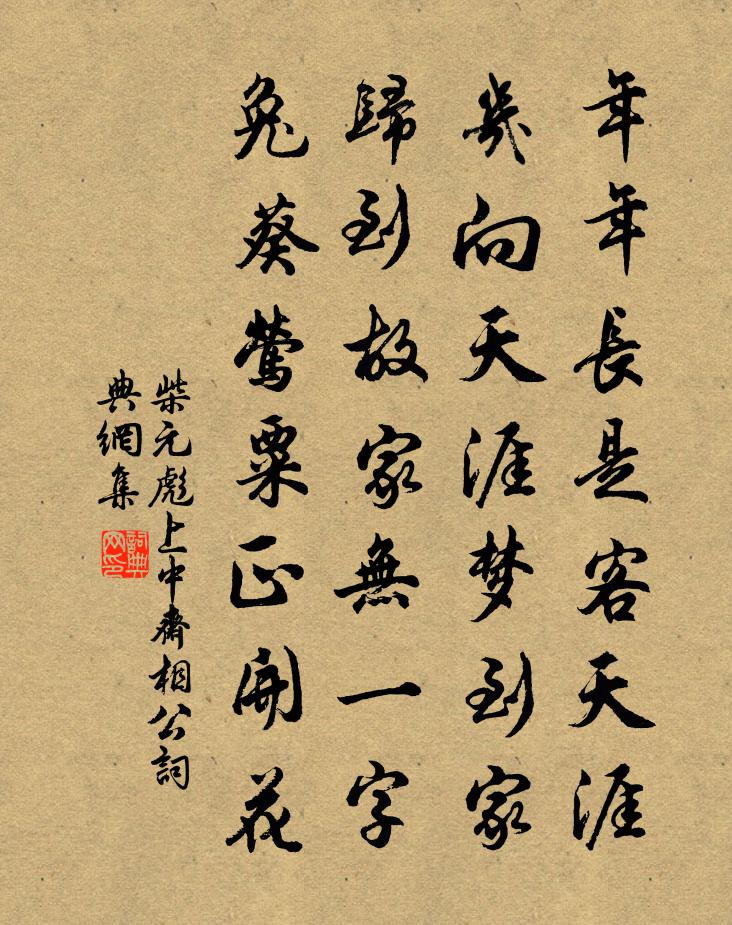 年年長是客天涯
幾向天涯梦到家
歸到故家無一字
兔葵莺粟正開花
柴元彪上中齋相公詞
典網集
詞典
网印